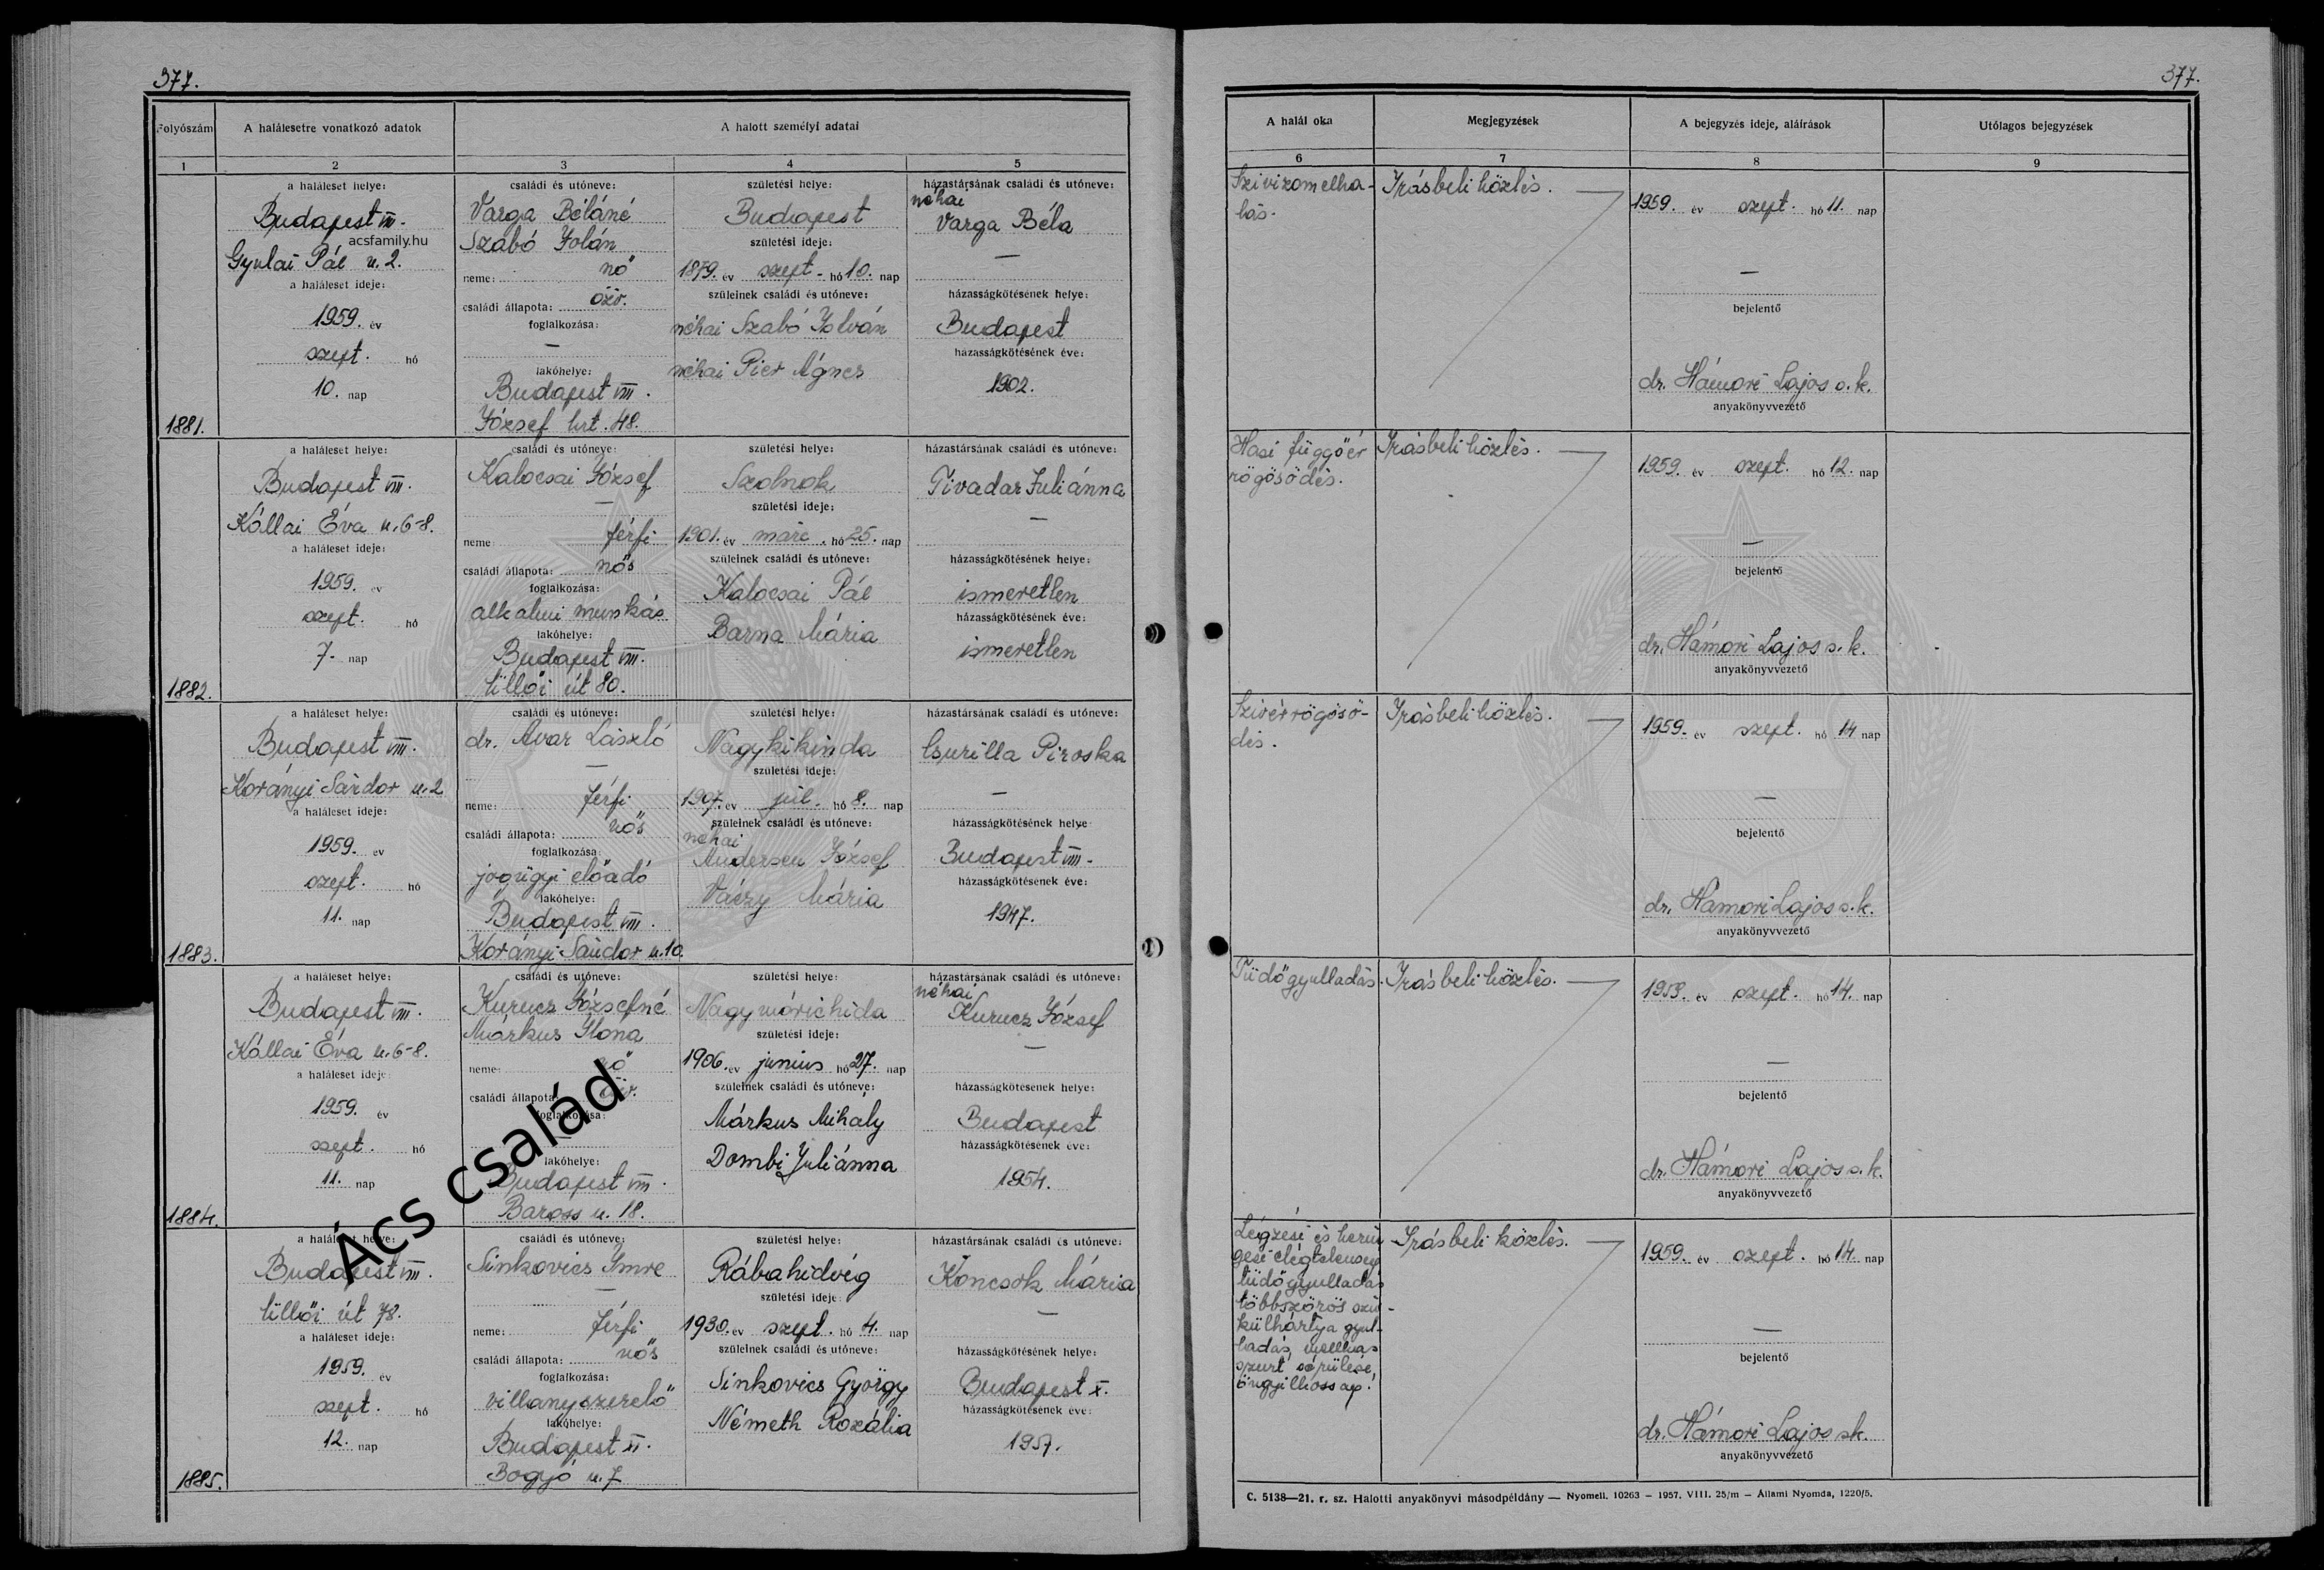 377.
377.
Folyószám
A halálesetre vonatkozó adatok
A halott személyi adatai
1
2
3
4
5
a haláleset helye:
Budapest VIII.
acsfamily.hu
Gyulai Pál u. 2.
a haláleset ideje:
1959. év
szept. hó
10. nap
1881.
családi és utóneve:
Varga Béláné
Szabó Jolán
neme: nő
családi állapota: özv.
foglalkozása:
—
lakóhelye:
Budapest VIII.
József krt. 48.
születési helye:
Budapest
születési ideje:
1879. év szept. hó 10. nap
szüleinek családi és utóneve:
néhai Szabó István
néhai Pier Ágnes
házastársának családi és utóneve:
néhai
Varga Béla
—
házasságkötésének helye:
Budapest
házasságkötésének éve:
1902.
a haláleset helye:
Budapest VIII.
Kállai Éva u. 6-8.
a haláleset ideje:
1959. év
szept. hó
7. nap
1882.
családi és utóneve:
Kalocsai József
—
neme: férfi
családi állapota: nős
foglalkozása:
alkalmi munkás
lakóhelye:
Budapest VIII.
Üllői út 80.
születési helye:
Szolnok
születési ideje:
1901. év márc. hó 25. nap
szüleinek családi és utóneve:
Kalocsai Pál
Barna Mária
házastársának családi és utóneve:
Tivadar Juliánna
—
házasságkötésének helye:
ismeretlen
házasságkötésének éve:
ismeretlen
a haláleset helye:
Budapest VIII.
Korányi Sándor u. 2
a haláleset ideje:
1959. év
szept. hó
11. nap
1883.
családi és utóneve:
dr. Avar László
—
neme: férfi
családi állapota: nős
foglalkozása:
jogügyi előadó
lakóhelye:
Budapest VIII.
Korányi Sándor u. 10.
születési helye:
Nagykikinda
születési ideje:
1907. év júl. hó 8. nap
szüleinek családi és utóneve:
néhai
Andersen József
Váczy Mária
házastársának családi és utóneve:
Csurilla Piroska
—
házasságkötésének helye
Budapest VIII.
házasságkötésének éve:
1947.
a haláleset helye:
Budapest VIII.
Kállai Éva u. 6-8.
a haláleset ideje
1959. év
szept. hó
11. nap
1884.
családi és utóneve:
Kurucz Józsefné
Márkus Ilona
neme: nő
családi állapota: özv.
foglalkozása:
lakóhelye:
Budapest VIII.
Baross u. 18.
születési helye:
Nagymórichida
születési ideje:
1906. év junius hó 27. nap
szüleinek családi és utóneve:
Márkus Mihály
Dombi Juliánna
házastársának családi és utóneve:
néhai
Kurucz József
—
házasságkötésének helye:
Budapest
házasságkötésének éve:
1954.
Ács család
a haláleset helye:
Budapest VIII.
Üllői út 78.
a haláleset ideje:
1959. év
szept. hó
12. nap
1885.
családi és utóneve:
Sinkovics Imre
—
neme: férfi
családi állapota: nős
foglalkozása:
villanyszerelő
lakóhelye:
Budapest XI.
Bogyó u. 7
születési helye:
Rábahidvég
születési ideje:
1930. év szept. hó 4. nap
szüleinek családi és utóneve:
Sinkovics György
Németh Rozália
házastársának családi és utóneve:
Koncsok Mária
—
házasságkötésének helye:
Budapest X.
házasságkötésének éve:
1957.
A halál oka
Megjegyzések
A bejegyzés ideje, aláírások
Utólagos bejegyzések
6
7
8
9
Szivizomelha-
lás.
Irásbeli közlés. —
1959. év szept. hó 11. nap
—
bejelentő
dr. Hámori Lajos s. k.
anyakönyvvezető
Hasi függőér
rögösödés.
Irásbeli közlés. —
1959. év szept. hó 12. nap
—
bejelentő
dr. Hámori Lajos s. k.
anyakönyvvezető
Szivérrögösö-
dés.
Irásbeli közlés. —
1959. év szept. hó 14 nap
—
bejelentő
dr. Hámori Lajos s. k.
anyakönyvvezető
Tüdőgyulladás.
Irásbeli közlés. —
1959. év szept. hó 14. nap
—
bejelentő
dr. Hámori Lajos s. k.
anyakönyvvezető
Légzési és kerin-
gési elégtelenség
tüdőgyulladás
többszörös sziv-
külhártya gyul-
ladás, mellkas
szúrt sérülése,
öngyilkosság.
Irásbeli közlés. —
1959. év szept. hó 14. nap
—
bejelentő
dr. Hámori Lajos sk.
anyakönyvvezető
C. 5138—21. r. sz. Halotti anyakönyvi másodpéldány — Nyomell. 10263 — 1957. VIII. 25/m — Állami Nyomda, 1220/5.